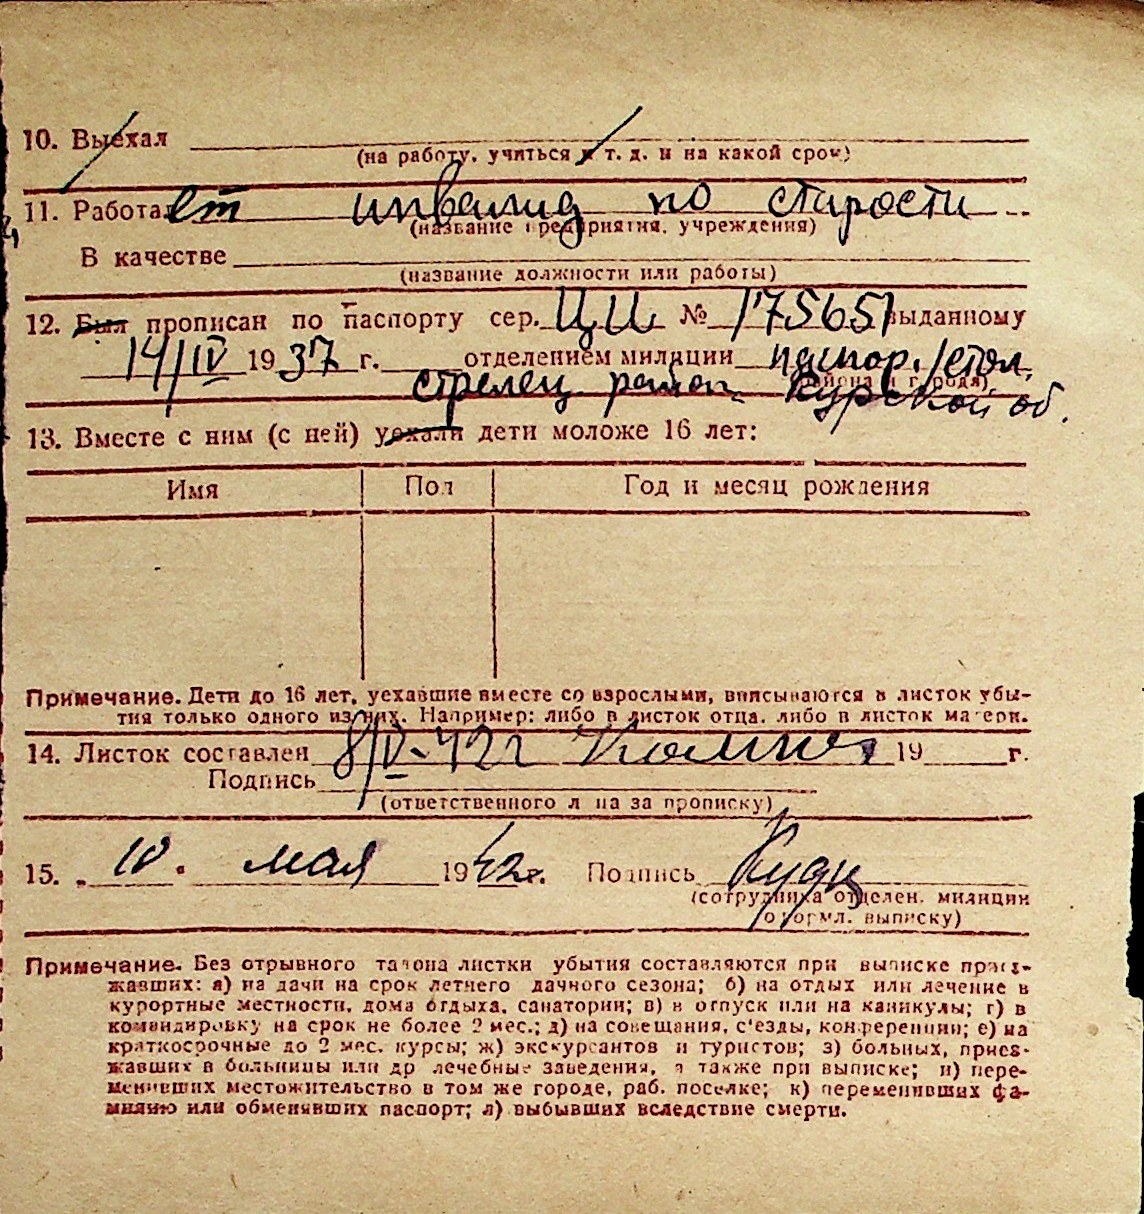 10. Выехал
(на работу, учиться и т. д. и на какой срок)
11. Работает инвалид по старости
(название предприятия, учреждения)
В качестве
(название должности или работы)
12. Был прописан по паспорту сер. ЦЦ № 175651 выданному
14/IV 1937 г. отделением милиции паспор./стол.
(района и города)
стрелец. район Курской об.
13. Вместе с ним (с ней) уехали дети моложе 16 лет:
Имя Пол Год и месяц рождения
Примечание. Дети до 16 лет, уехавшие вместе со взрослыми, вписываются в листок убы-
тия только одного из них. Например: либо в листок отца, либо в листок матери.
14. Листок составлен 8/V-42г 19 г.
Подпись
(ответственного лица за прописку)
15. 10. мая 1942г. Подпись
(сотрудника отделен. милиции
оформл. выписку)
Примечание. Без отрывного талона листки убытия составляются при выписке приез-
жавших: а) на дачи на срок летнего дачного сезона; б) на отдых или лечение в
курортные местности, дома отдыха, санатории; в) в отпуск или на каникулы; г) в
командировку на срок не более 2 мес.; д) на совещания, с'езды, конференции; е) на
краткосрочные до 2 мес. курсы; ж) экскурсантов и туристов; з) больных, приез-
жавших в больницы или др лечебные заведения, а также при выписке; и) пере-
менивших местожительство в том же городе, раб. поселке; к) переменивших фа-
милию или обменявших паспорт; л) выбывших вследствие смерти.